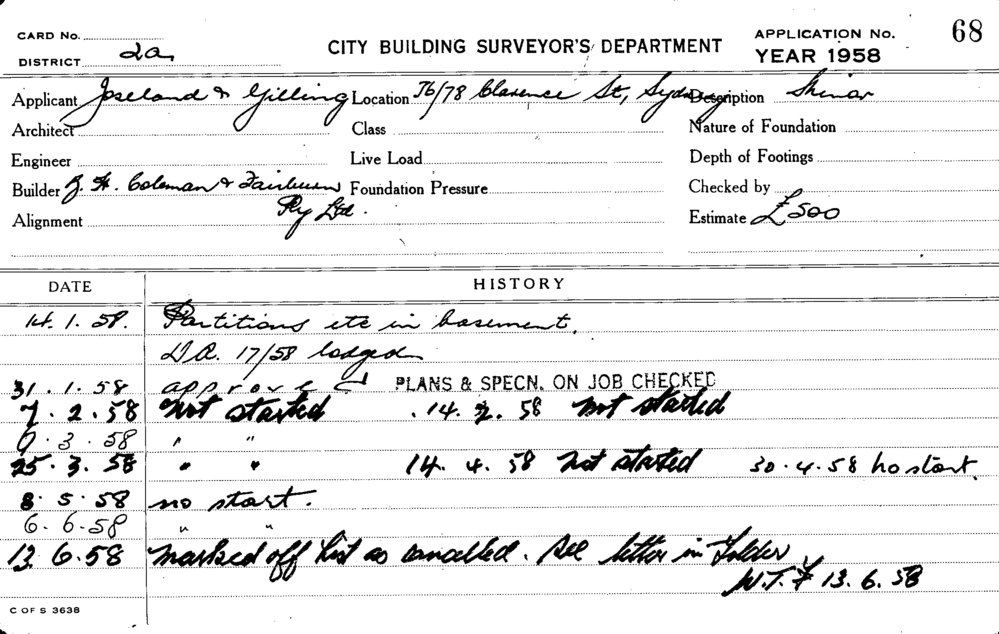 CARD No. CITY BUILDING SURVEYOR'S DEPARTMENT APPLICATION No. 68
DISTRICT 2a. YEAR 1958
Applicant Joseland & Gilling Location 76/78 Clarence St, Sydney Description Minor
Architect Class Nature of Foundation
Engineer Live Load Depth of Footings
Builder H. Coleman & Fairburn Foundation Pressure Checked by
Pty Ltd.
Alignment Estimate £500
DATE HISTORY
14.1.58. Partitions etc in basement.
D.A. 17/58 lodged
31.1.58 approved PLANS & SPECN. ON JOB CHECKED
7.2.58 Not started 14.2.58 Not started
3.58 " "
25.3.58 " " 14.4.58 Not started 30.4.58 no start.
8.5.58 no start.
6.6.58 " "
13.6.58 Marked off List as cancelled. See letter in Folder
W.T.F 13.6.58
C OF S 3638